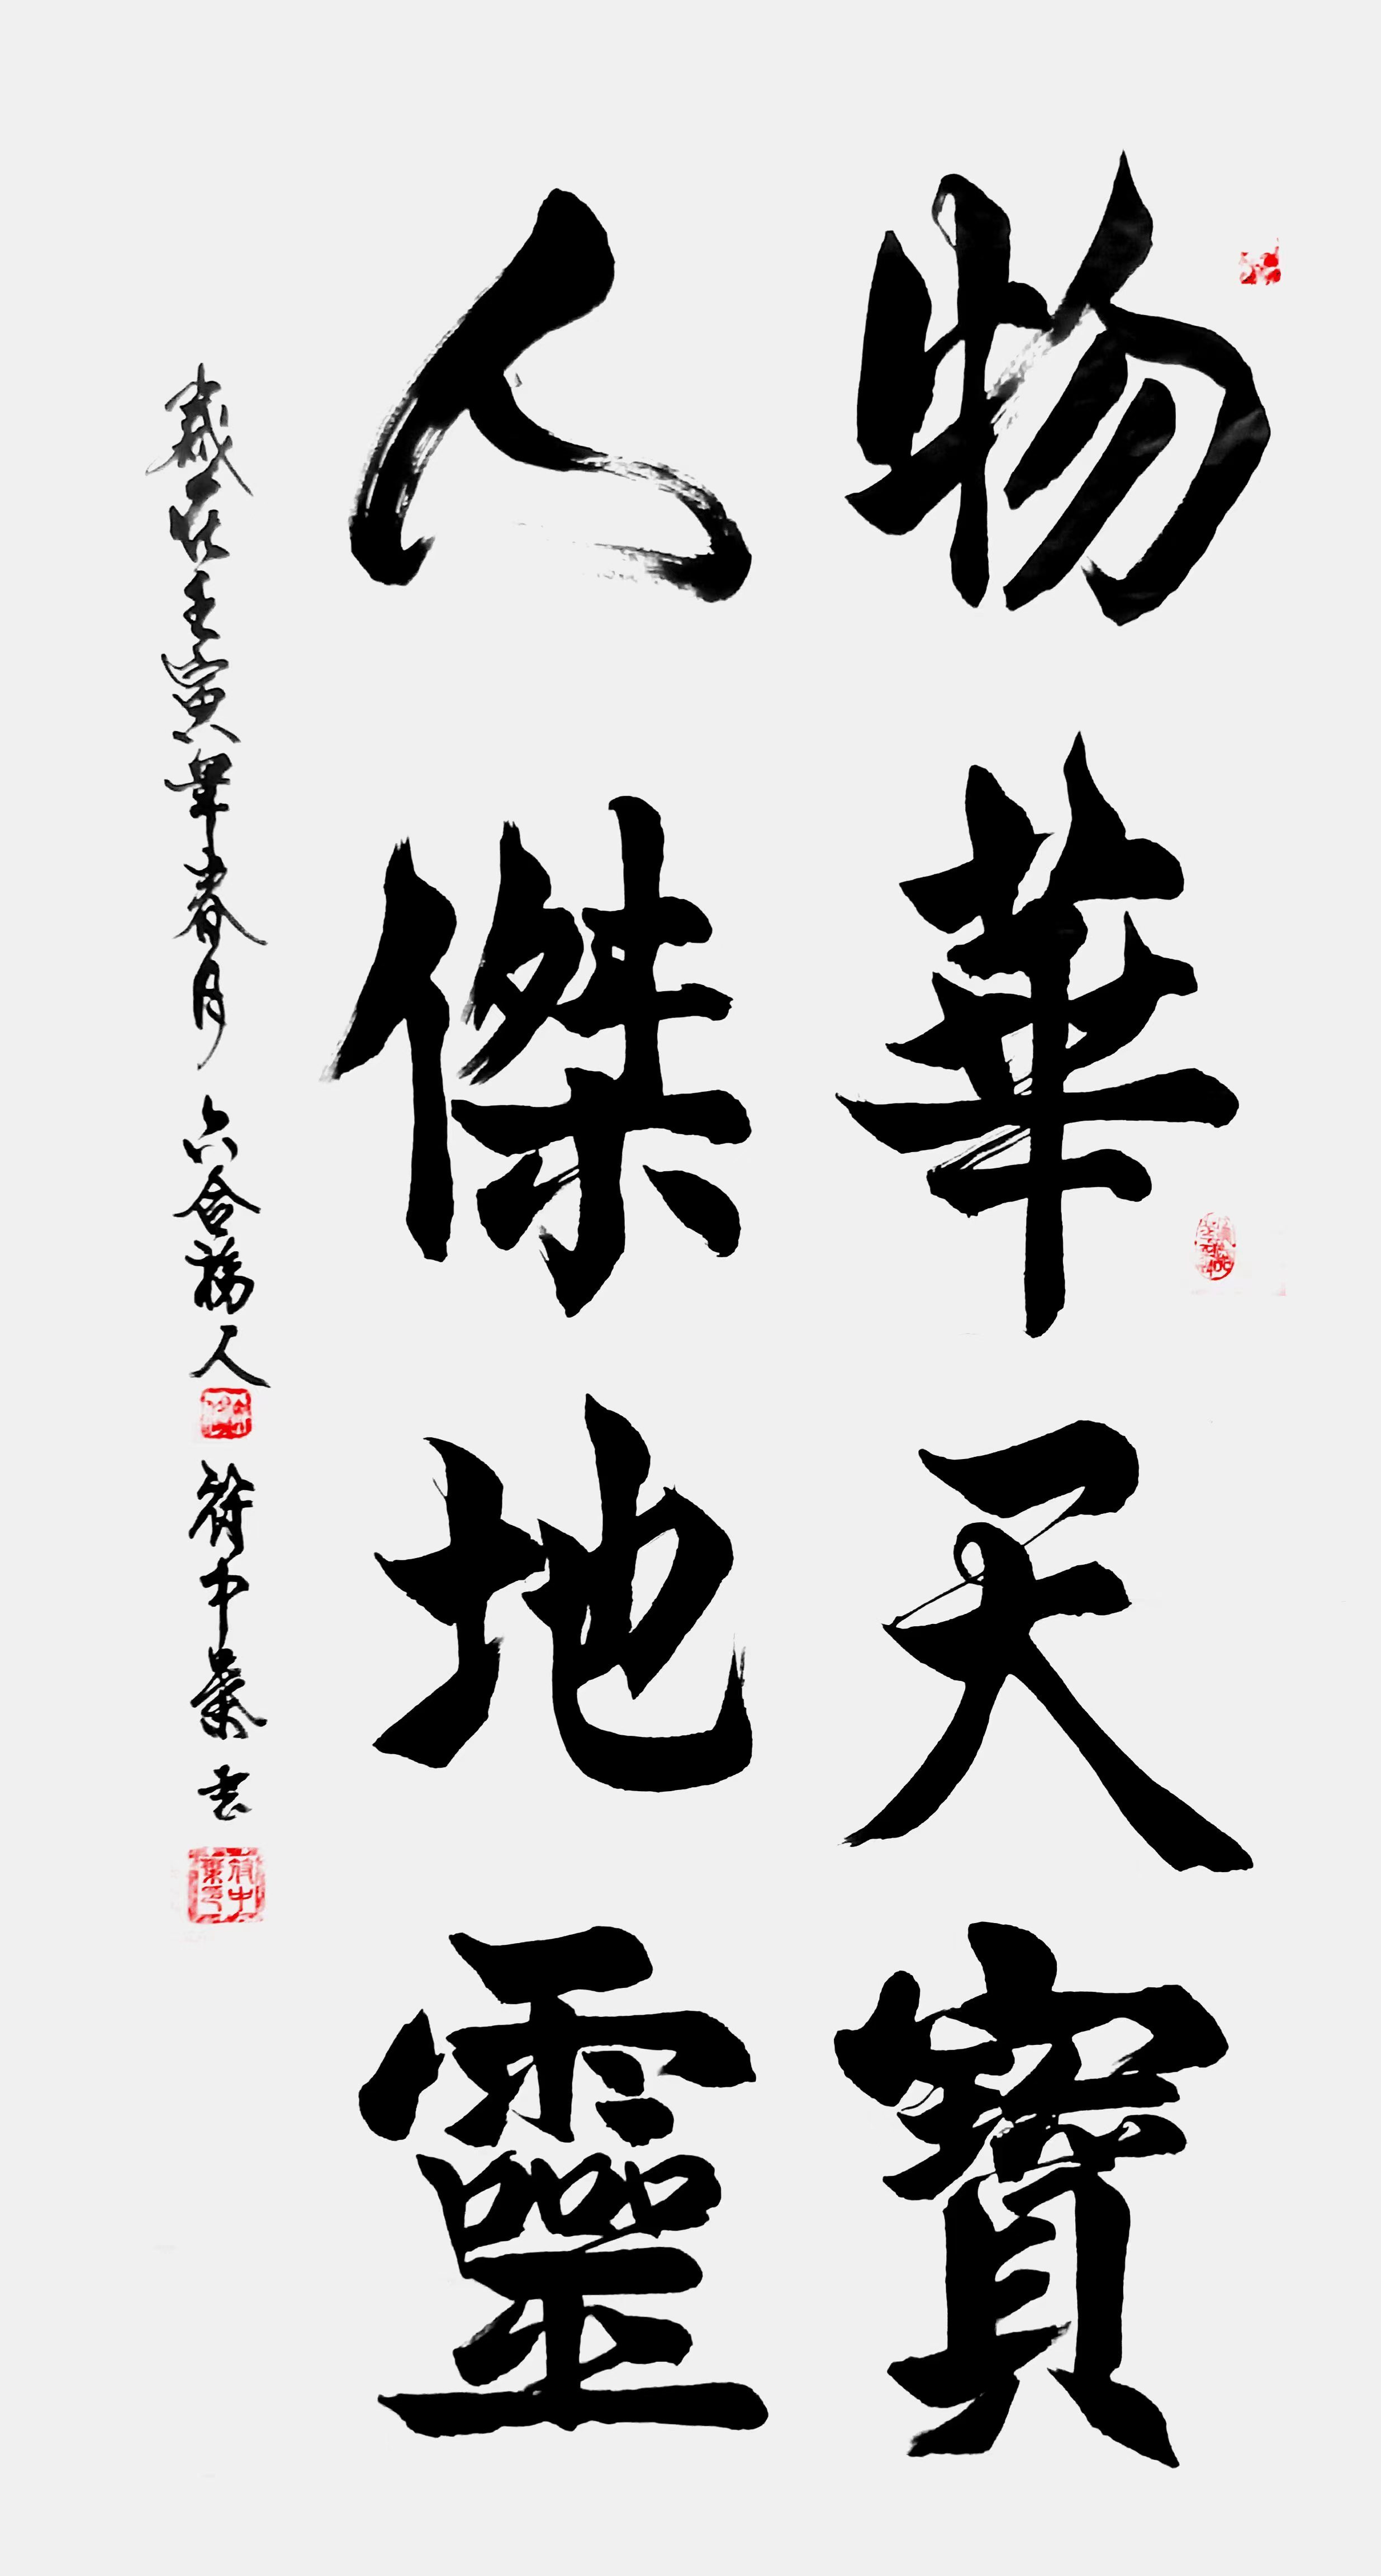 物華天寶
人傑地靈
歲在壬寅年春月 六合 人 符中業 書